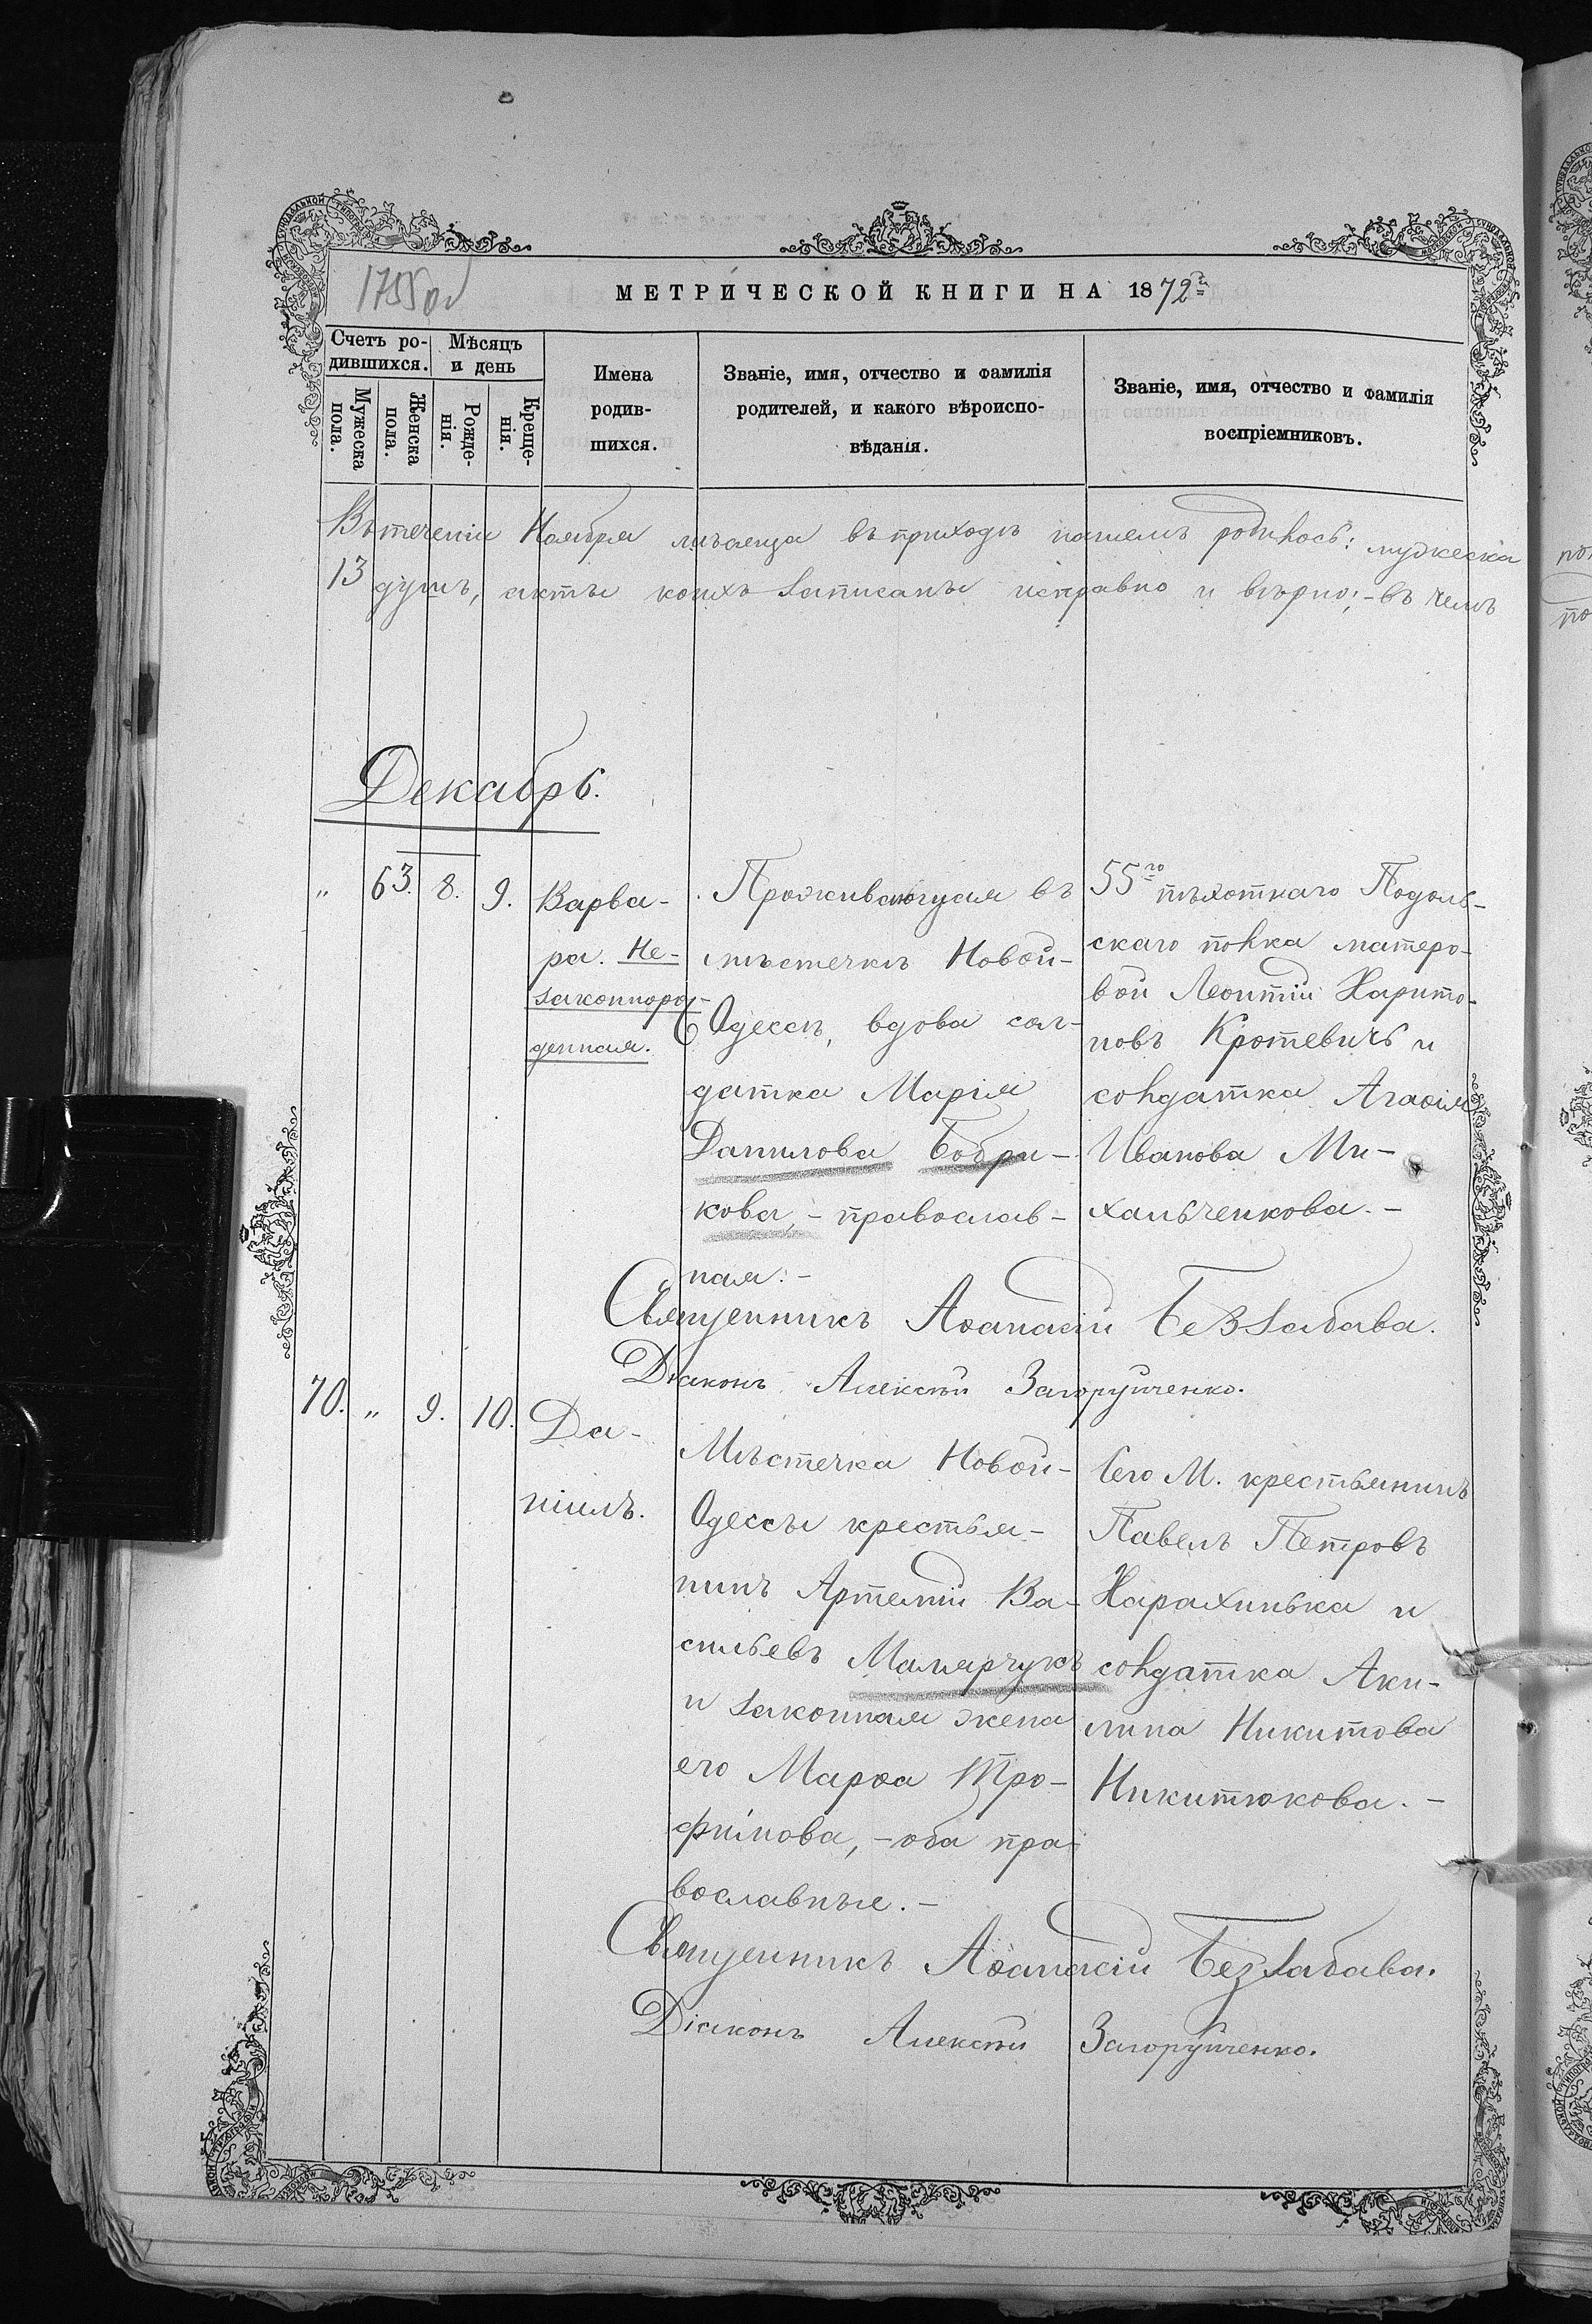 1755 об
МЕТРИЧЕСКОЙ КНИГИ НА 1872й
Счетъ ро-
дившихся.
Мѣсяцъ
и день
Мужеска
пола.
Женска
пола.
Рожде-
нія.
Креще-
нія.
Имена
родив-
шихся.
Званіе, имя, отчество и фамилія
родителей, и какого вѣроиспо-
вѣданія.
Званіе, имя, отчество и фамилія
воспріемниковъ.
Въ теченіи Ноября мѣсяца въ приходѣ нашемъ родилось: мужеска
13 душъ, акты коихъ записаны исправно и вѣрно; - въ чемъ
Декабрь.
" 63. 8. 9.
Варва-
ра. Не-
законнорож-
денная.
Проживающая въ
мѣстечкѣ Новой-
Одессѣ, вдова сол-
датка Марія
Данилова Бобри-
кова, - православ-
ная. -
55го пѣхотнаго Подоль-
скаго полка матеро-
вой Леонтій Харито-
новъ Кротевичъ и
солдатка Агаѳія
Иванова Ми-
хальченкова. -
Священникъ Аѳанасій Беззабава.
Діаконъ Алексѣй Загоруйченко.
70. " 9. 10.
Да-
ніилъ.
Мѣстечка Новой-
Одессы крестья-
нинъ Артемій Ва-
сильевъ Малярчукъ
и законная жена
его Марѳа Тро-
фимова, - оба пра-
вославные. -
Сего М. крестьянинъ
Павелъ Петровъ
Карахинька и
солдатка Аки-
лина Никитова
Никитюкова. -
Священникъ Аѳанасій Беззабава.
Діаконъ Алексѣй Загоруйченко.